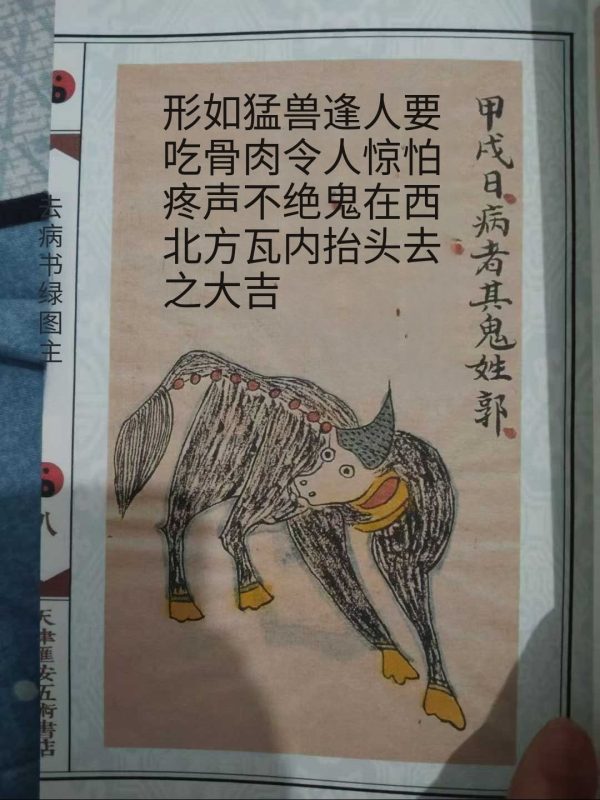 形如猛兽逢人要
吃骨肉令人惊怕
疼声不绝鬼在西
北方瓦内抬头去
之大吉
甲戌日病者其鬼姓郭
去病书绿图主
八
天津匯安五術書店